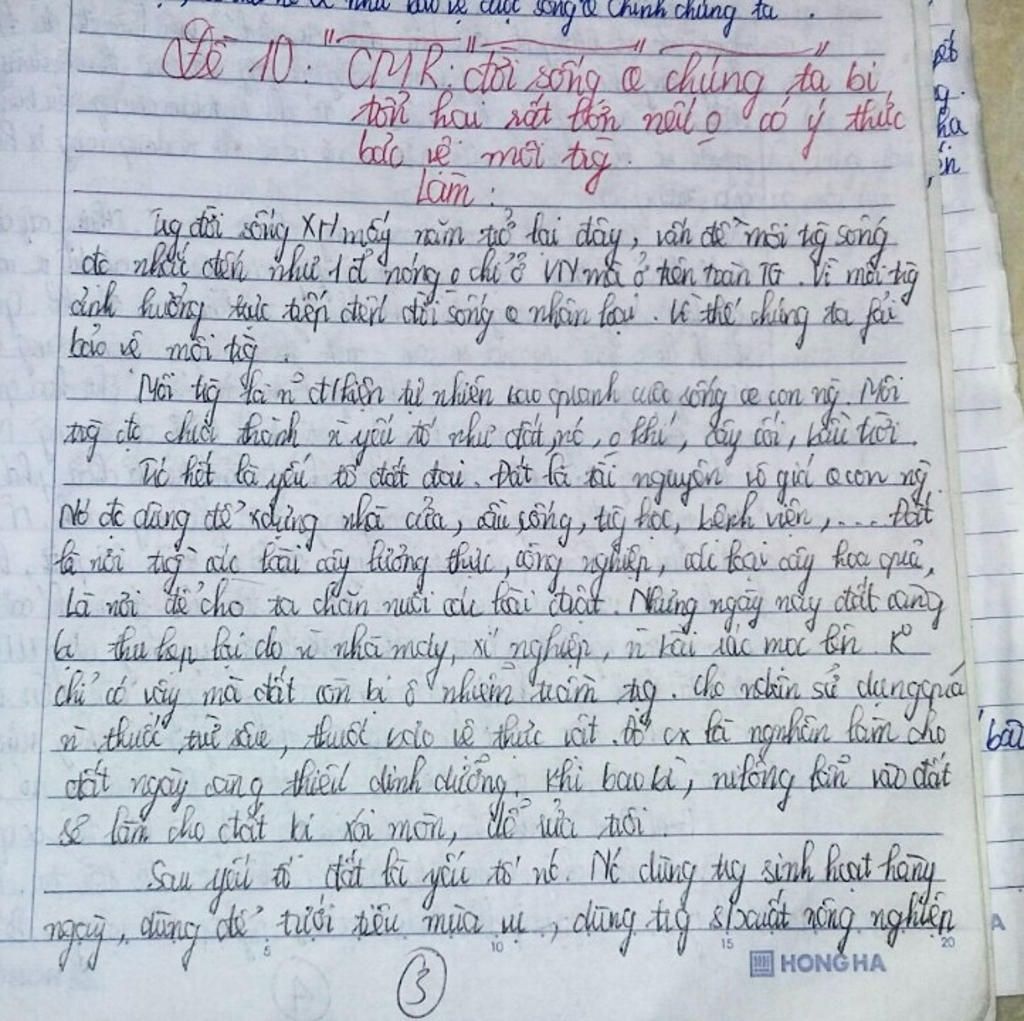 như bảo vệ cuộc sống @ chính chúng ta.
Đề 10: CMR: "đời sống @ chúng ta bị
tổn hại rất lớn nếu o có ý thức
bảo vệ môi trg"
Làm:
Trg đời sống XH mấy năm trở lại đây, vấn đề môi trg sống
đc nhắc đến như 1 đề nóng o chỉ ở VN mà ở trên toàn TG. Vì môi trg
ảnh hưởng trực tiếp đến đời sống @ nhân loại. Vì thế chúng ta fải
bảo vệ môi trg.
Môi trg là n đ/kiện tự nhiên bao quanh cuộc sống @ con ng. Môi
trg đc chia thành n yếu tố như đất, nc, o khí, cây cối, bầu trời.
Trc hết là yếu tố đất đai. Đất là tài nguyên vô giá @ con ng.
Nó đc dùng để xdựng nhà cửa, cầu sống, trg học, bệnh viện,.... Đất
là nơi trg các loài cây lương thực, công nghiệp, các loại cây hoa quả,
là nơi để cho ta chăn nuôi các loài đvật. Nhưng ngày nay đất càng
bị thu hẹp lại do n nhà máy, xí nghiệp, n bãi rác mọc lên. K
chỉ có vậy mà đất còn bị ô nhiễm trầm trg. Cho nên sử dụng quá
n thuốc trừ sâu, thuốc bảo vệ thực vật. Đó cx là ngnhân làm cho
đất ngày càng thiếu dinh dưỡng. Khi bao bì, nilông lẫn vào đất
sẽ làm cho đất bị xói mòn, dễ rửa trôi.
Sau yếu tố đất là yếu tố nc. Nc dùng trg sinh hoạt hàng
ngày, dùng để tưới tiêu mùa vụ, dùng trg s/xuất nông nghiệp
5 10 15 20
HONG HA
3